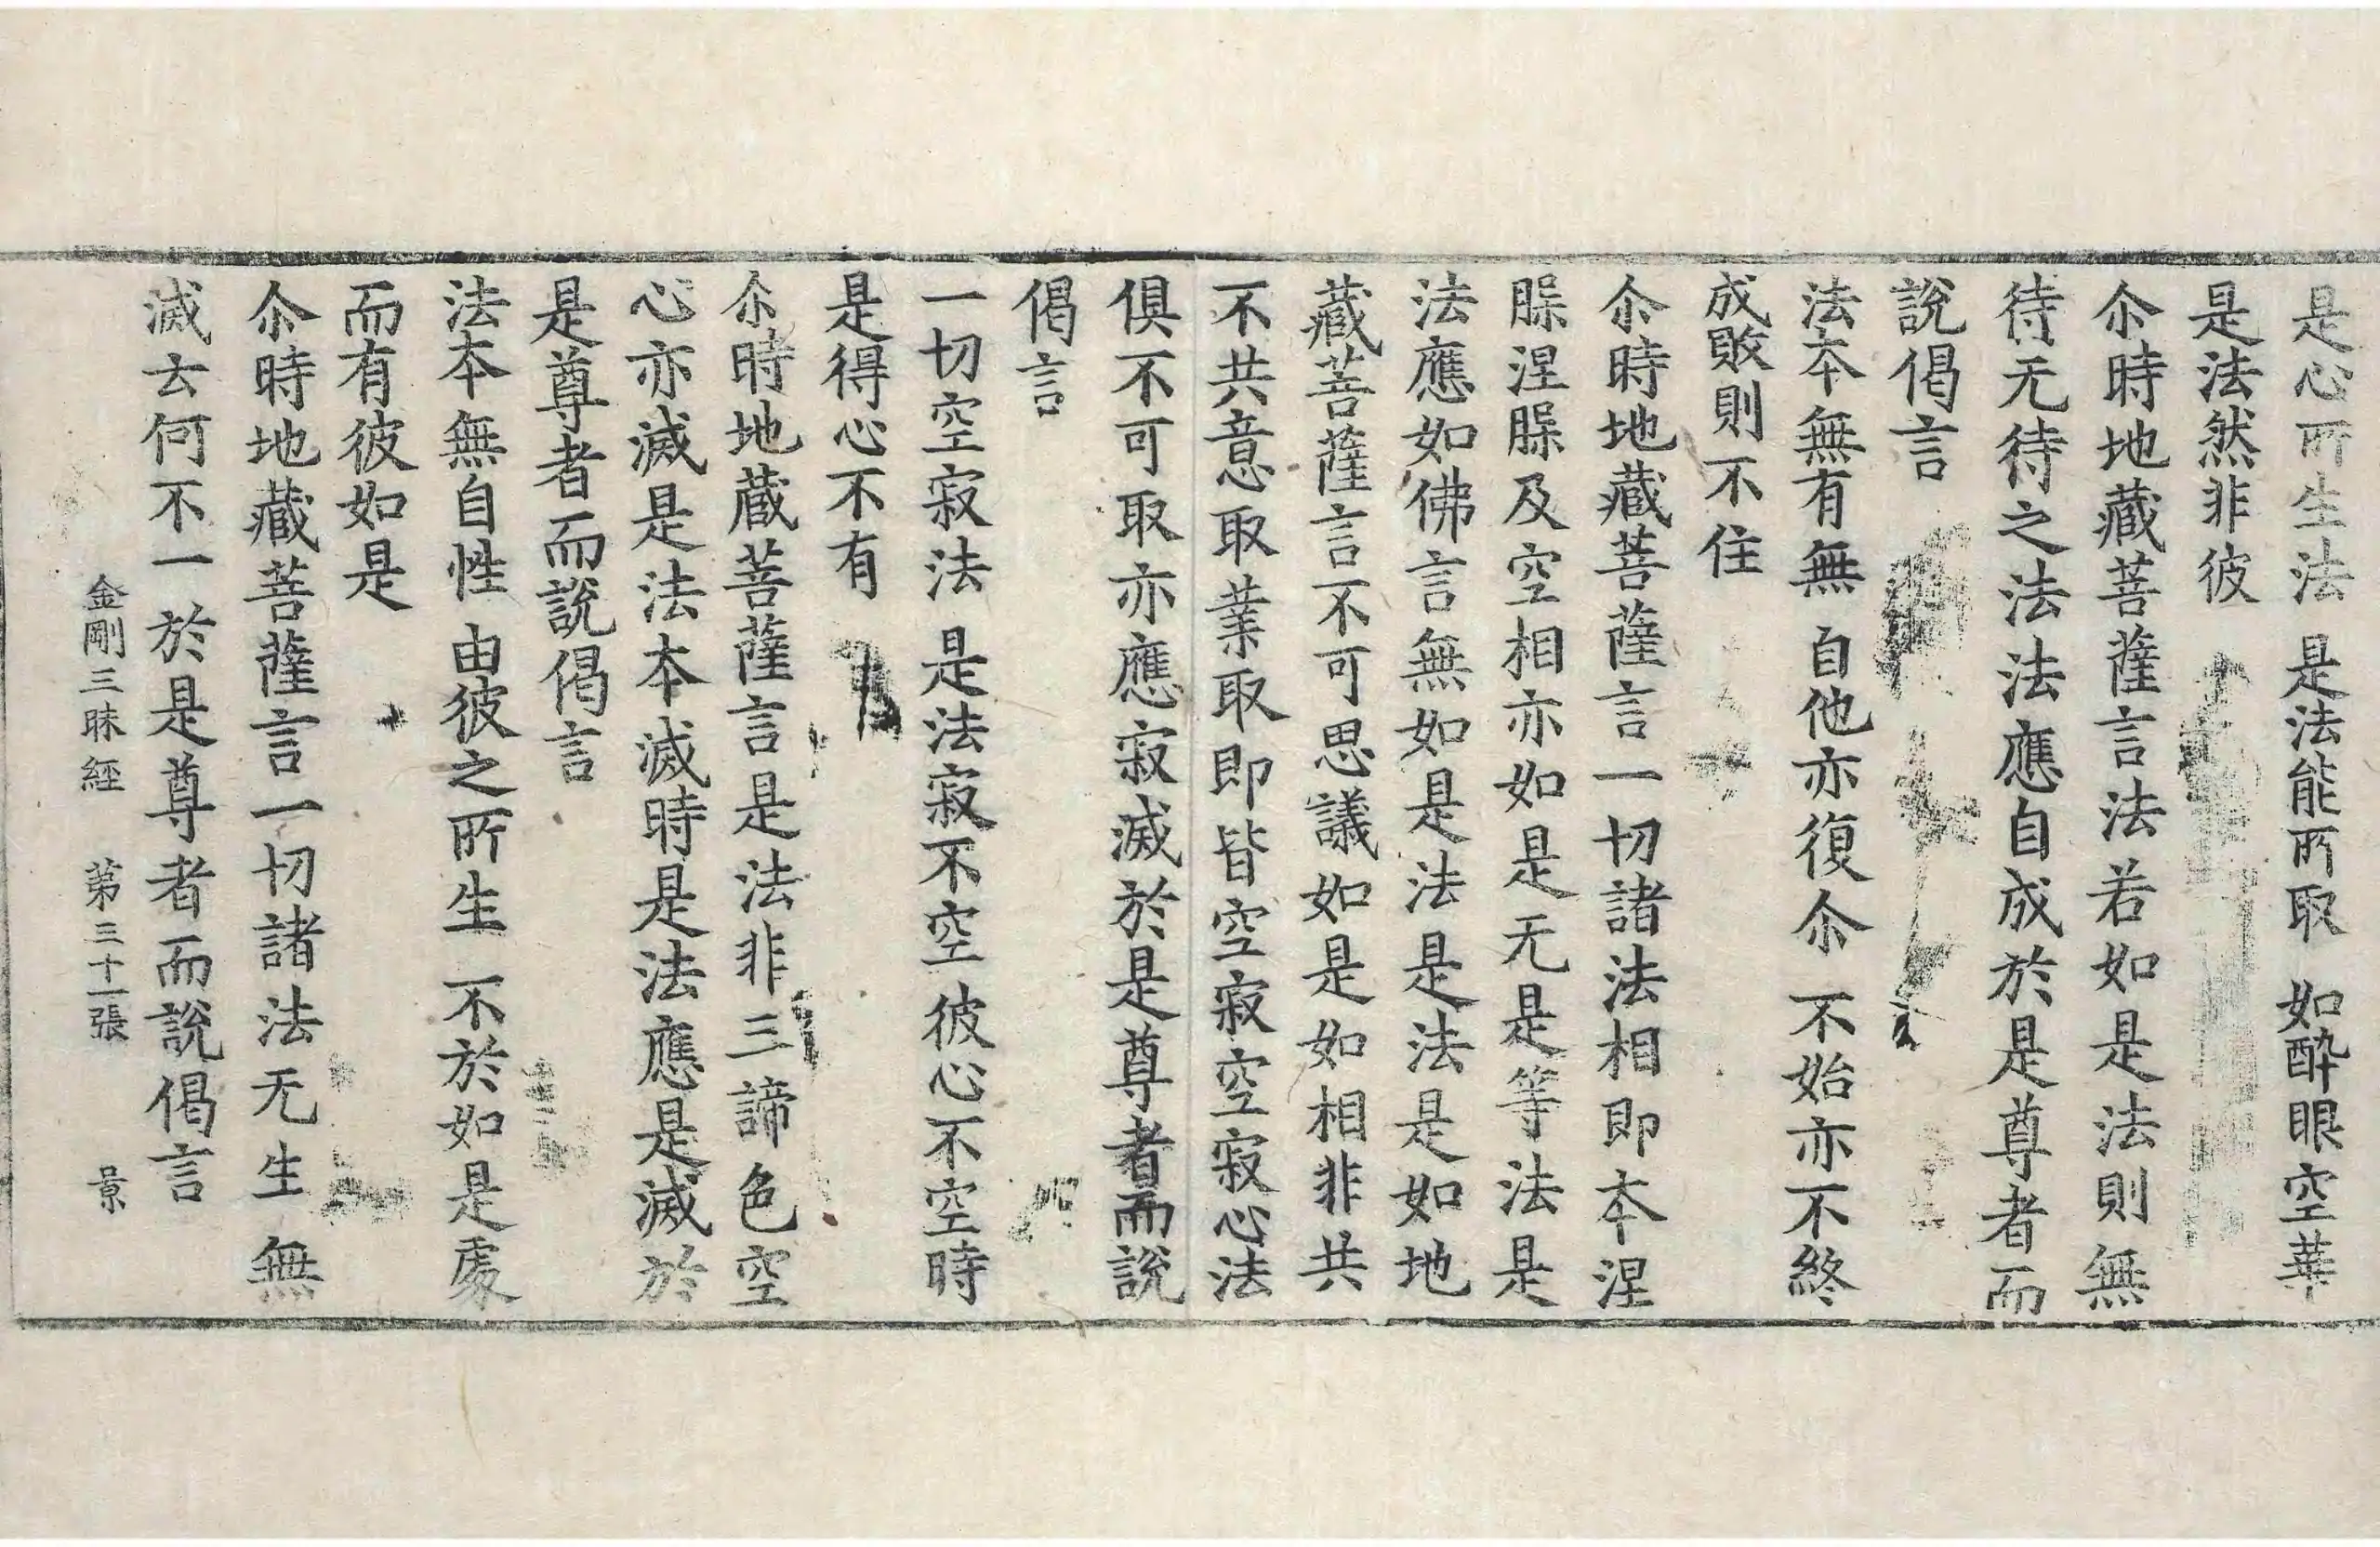 是心所生法　是法能所取　如醉眼空華
是法然非彼
尒時地藏菩薩言法若如是法則無
待无待之法法應自成於是尊者而
說偈言
法本無有無　自他亦復尒　不始亦不終
成敗則不住
尒時地藏菩薩言一切諸法相即本涅
槃涅槃及空相亦如是无是等法是
法應如佛言無如是法是法是如地
藏菩薩言不可思議如是如相非共
不共意取業取即皆空寂空寂心法
俱不可取亦應寂滅於是尊者而說
偈言
一切空寂法　是法寂不空　彼心不空時
是得心不有
尒時地蔵菩薩言是法非三諦色空
心亦滅是法本滅時是法應是滅於
是尊者而說偈言
法本無自性　由彼之所生　不於如是處
而有彼如是
尒時地藏菩薩言一切諸法无生無
滅云何不一於是尊者而說偈言
金剛三昧經　第三十一張　景